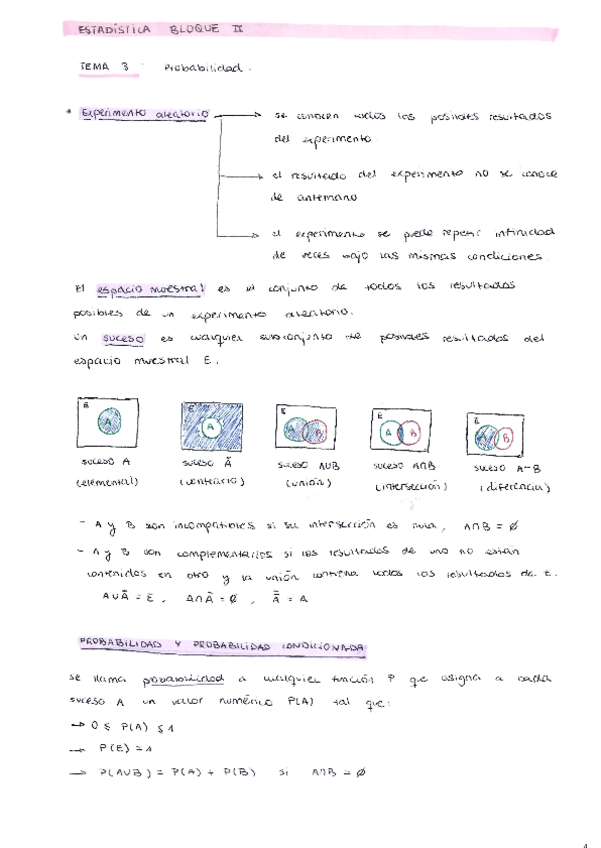 ESTADÍSTICA BLOQUE II
TEMA 3 Probabilidad.
* Experimento aleatorio → se conocen todos los posibles resultados
del experimento.
→ el resultado del experimento no se conoce
de antemano
→ el experimento se puede repetir infinidad
de veces bajo las mismas condiciones.
El espacio muestral es el conjunto de todos los resultados
posibles de un experimento aleatorio.
Un suceso es cualquier subconjunto de posibles resultados del
espacio muestral E.
E A
E A
E A B
E A B
E A B
suceso A
(elemental)
suceso Ā
(contrario)
suceso A∪B
(unión)
suceso A∩B
(intersección)
suceso A-B
(diferencia)
- A y B son incompatibles si su intersección es nula, A∩B = Ø
- A y B son complementarios si los resultados de uno no están
contenidos en otro y la unión contiene todos los resultados de E.
A∪Ā = E, A∩Ā = Ø, Ā̄ = A
PROBABILIDAD Y PROBABILIDAD CONDICIONADA
Se llama probabilidad a cualquier función P que asigna a cada
suceso A un valor numérico P(A) tal que:
→ 0 ≤ P(A) ≤ 1
→ P(E) = 1
→ P(A∪B) = P(A) + P(B) si A∩B = Ø